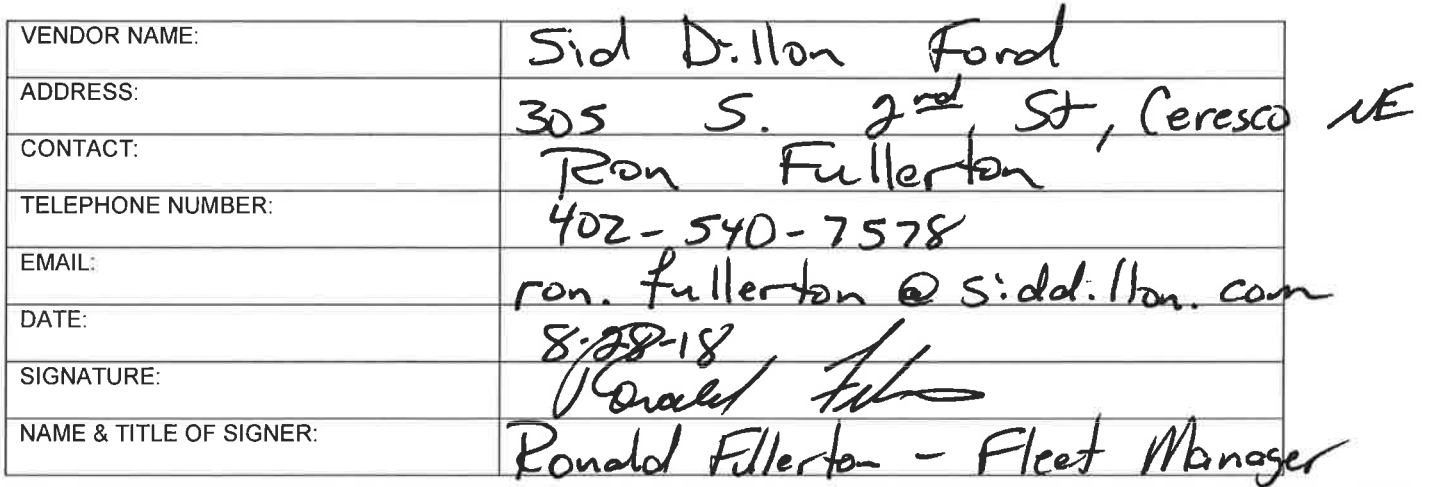 VENDOR NAME: Sid Dillon Ford
ADDRESS: 305 S. 2nd, St, Ceresco NE
CONTACT: Ron Fullerton
TELEPHONE NUMBER: 402-540-7578
EMAIL: ron.fullerton@siddillon.com
DATE: 8-28-18
SIGNATURE: Ronald
NAME & TITLE OF SIGNER: Ronald Fullerton - Fleet Manager